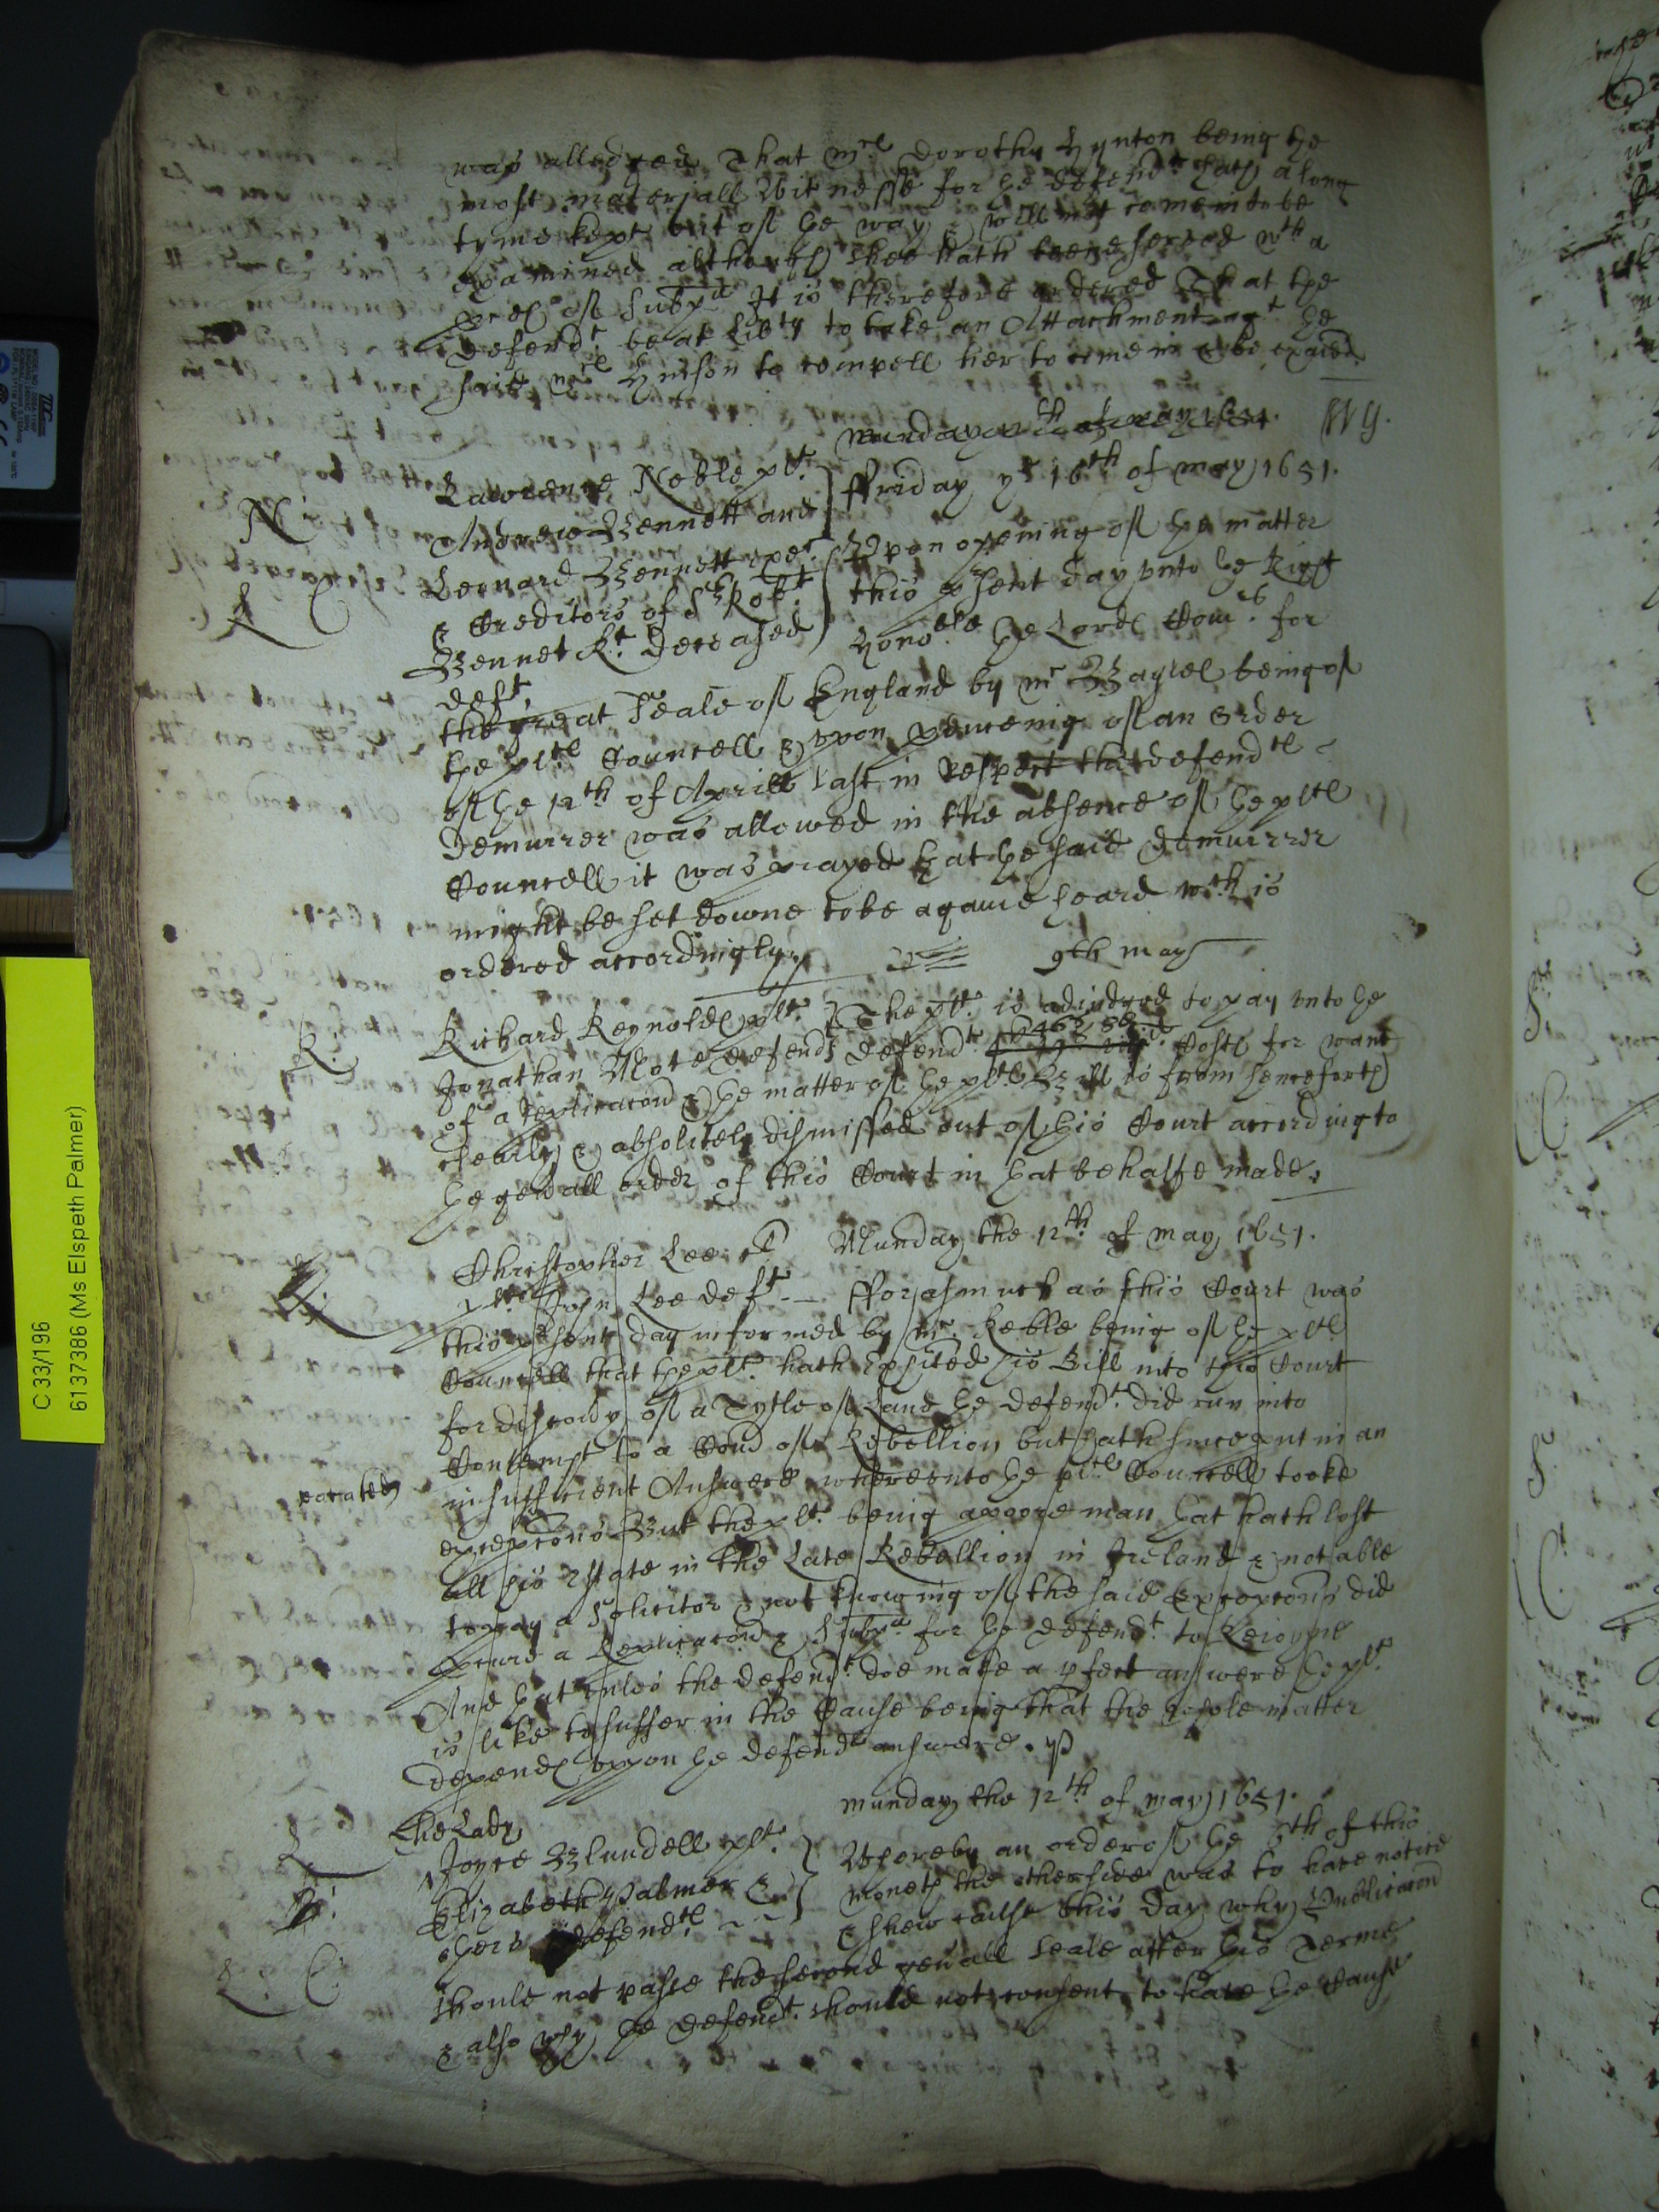 was alledged That mrs Dorothy Hynton being the
most materiall Witnesse for he defendt hath a long
tyme kept out of he way & will not come in to be
examined although shee hath beene served wth a
proces of Subpa It is therefore ordered That the
defendt. be at libty to take an Attachment agt he
said mrs Hynson to compell her to come in & be exaied
munday 12th of may 1651.
Lawrence Noble plt.
Andrew Bennett and
Leonard Bennett exer.
& Creditors of Sr Robt.
Bennet Kt. deceased
deft.
N
L C
ffriday ye 16th of may 1651.
Upon opening of he matter
this psent day unto he Right
honoble he Lords Comrs for
the great Seale of England by mr being of
the plts Councell & upon of an order
of he 12th of Aprill last in Respect that defendts
demurrer was allowed in the absence of he plts
Councell it was prayed that he said demurrer
might be set downe to be againe heard wch is
ordered accordingly
9th may
R
Richard Reynolds plt.
Jonathan Mote defendt
The plt. is adiudged to pay unto he
defendt. Costs for want
of a Replicacon & he matter of he plts Bill is from henceforth
cleerly & absolutely dismissed out of this Court according to
he genall order of this Court in that behalfe made.
Munday the 12th of may 1651.
Christopher Lee
plt. John Lee deft. fforasmuch as this Court was
this psent day informed by mr Keble being of he plts
Councell that the plt. hath exhited his Bill into this Court
for discovy of a Tytle of Land he defendt. did run into
Contempt to a Comd of Rebellion but hath since put in an
vacated
insufficient Answere whereunto he plts Councell tooke
excepcons But the plt. being a poore man that hath lost
all his Estate in the Late Rebellion in Ireland & not able
to pay a Solicitor & not knowing of the said Excepcons did
a Replicacon & Subpa for he defendt. to Reioyne
And that unles the defendt. doe make a pfect answere he plt.
is like to suffer in the Cause being that the whole matter
depends uppon he defendts answere.
munday the 12th of may 1651.
The Lady
Joyce Blundell plt.
Elizabeth Palmer &
others defendts
Whereby an order of he 6th of this
moneth the other side was to have notice
& shew cause this day why Publicacon
should not passe the second genall Seale after this Terme
& also why he defendt. should not consent to have he Cause
C 33/196
6137386 (Ms Elspeth Palmer)